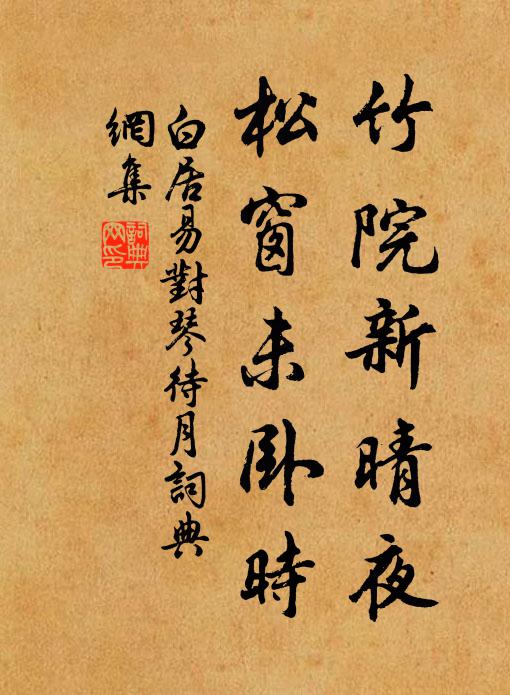 竹院新晴夜
松窗未卧時
白居易對琴待月詞典
網集
詞典
網印